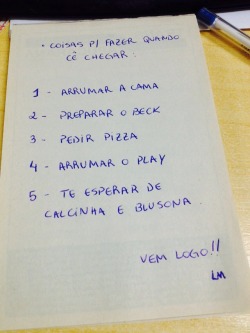 • COISAS P/ FAZER QUANDO
CÊ CHEGAR:
1 - ARRUMAR A CAMA
2 - PREPARAR O BECK
3 - PEDIR PIZZA
4 - ARRUMAR O PLAY
5 - TE ESPERAR DE
CALCINHA E BLUSONA.
VEM LOGO!!
LM